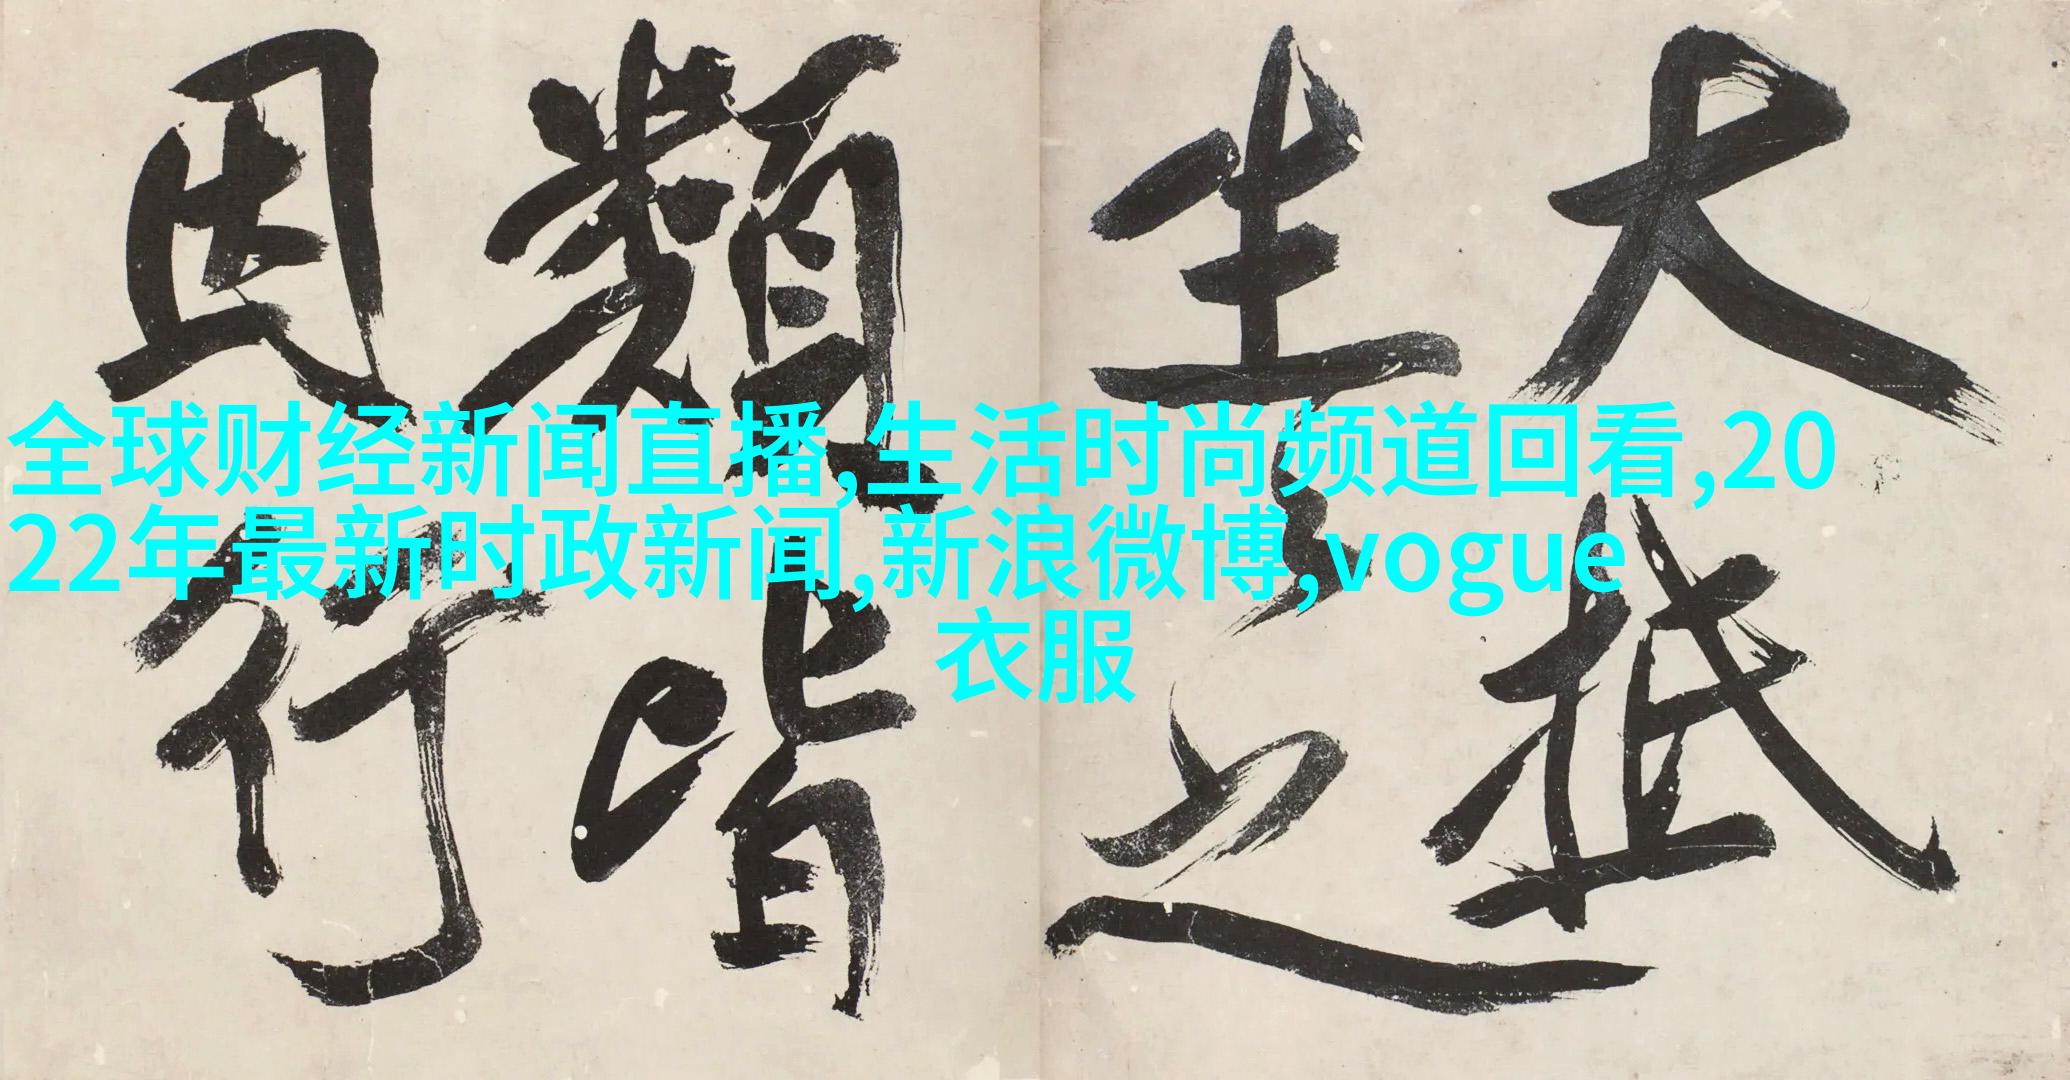 全球财经新闻直播,生活时尚频道回看,20
22年最新时政新闻,新浪微博,vogue
衣服
大抵
生〻之
類皆
因行